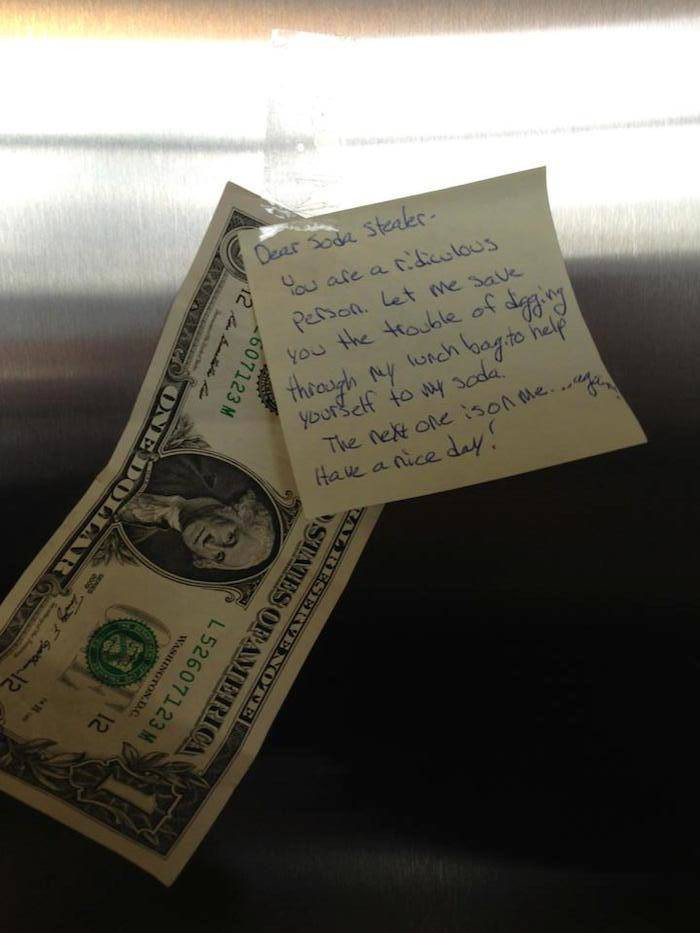 Dear Soda Stealer-
You are a ridiculous
person. Let me save
you the trouble of digging
through my lunch bag to help
yourself to my soda.
The next one is on me....again
Have a nice day!
FEDERAL RESERVE NOTE
STATES OF AMERICA
L52607123M
WASHINGTON, D.C.
12
12
607123M
12
ONE DOLLAR
1